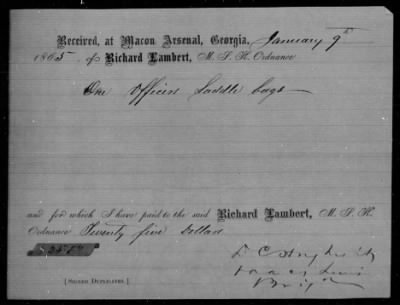 Received, at Macon Arsenal, Georgia, January 9th
1865 of Richard Lambert, M. S. K. Ordnance
One officers saddle bags
and for which I have paid to the said Richard Lambert, M. S. K.
Ordnance Twenty five Dollars
[SIGNED DUPLICATES.]